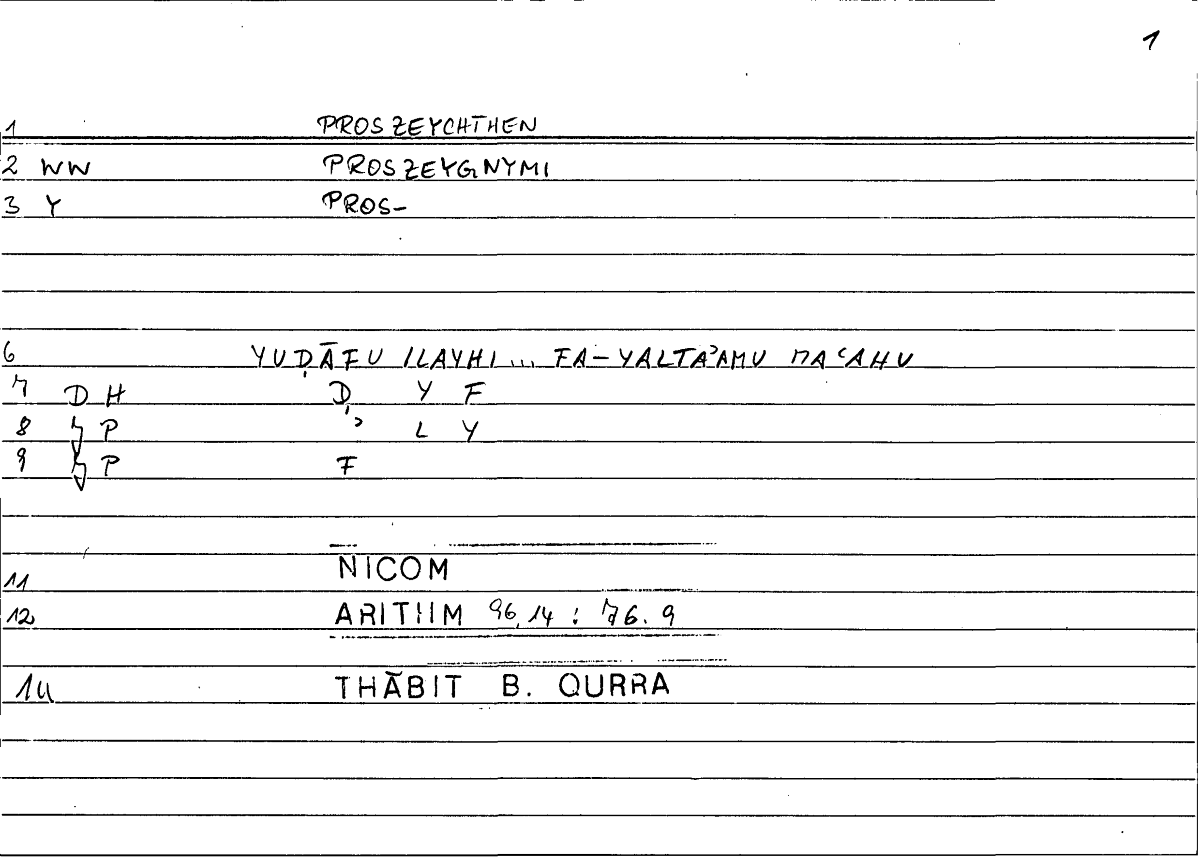 1
1 PROSZEYCHTHEN
2 WW PROSZEYGNYMI
3 Y PROS-
6 YUḌĀFU ILAYHI ... FA-YALTAʾAMU MAʿAHU
7 D H Ḍ Y F
8 P ʾ L Y
9 P F
11 NICOM
12 ARITHM 96,14 : 76.9
14 THĀBIT B. QURRA